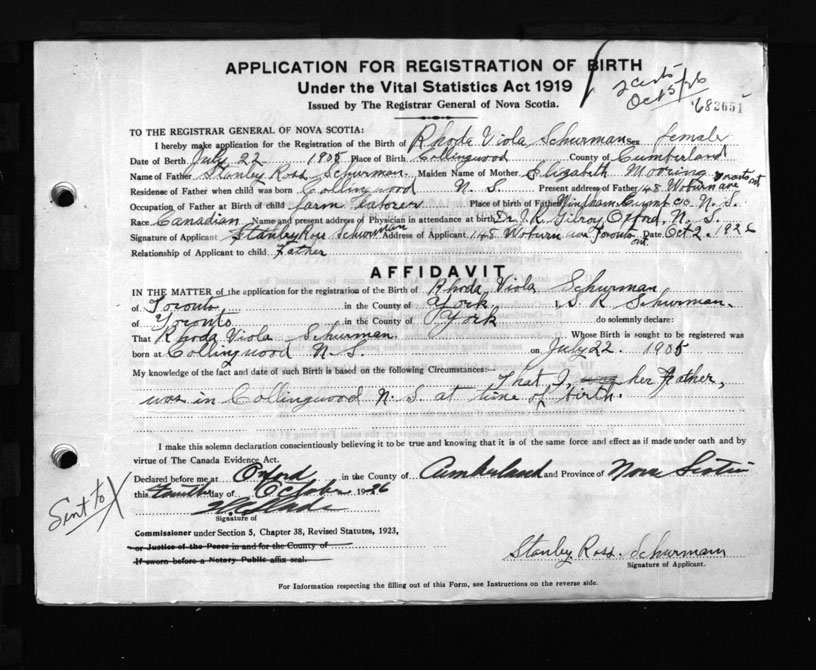 APPLICATION FOR REGISTRATION OF BIRTH
Under the Vital Statistics Act 1919
Issued by The Registrar General of Nova Scotia.
Oct 5/26
682651
TO THE REGISTRAR GENERAL OF NOVA SCOTIA:
I hereby make application for the Registration of the Birth of Rhoda Viola Schurman Sex female
Date of Birth July 22 1905 Place of Birth Collingwood County of Cumberland
Name of Father Stanley Ross Schurman Maiden Name of Mother Elizabeth Mooring
Residense of Father when child was born Collingwood N. S. Present address of Father 148 Woburn ave Toronto ont
Occupation of Father at Birth of child farm laborer Place of birth of Father Co. N. S.
Race Canadian Name and present address of Physician in attendance at birth Dr. J. R. Gilroy Oxford, N. S.
Signature of Applicant Stanley Ross Schurman Address of Applicant 148 Woburn ave Toronto ont. Date Oct 2. 1926
Relationship of Applicant to child Father
AFFIDAVIT
IN THE MATTER of the application for the registration of the Birth of Rhoda Viola Schurman
of Toronto in the County of York S. R. Schurman.
of Toronto in the County of York do solemnly declare:
That Rhoda Viola Schurman. Whose Birth is sought to be registered was
born at Collingwood N. S. on July 22. 1905
My knowledge of the fact and date of such Birth is based on the following Circumstances:—
That I, her Father,
was in Collingwood N. S. at time of birth.
I make this solemn declaration conscientiously believing it to be true and knowing that it is of the same force and effect as if made under oath and by
virtue of The Canada Evidence Act.
Declared before me at Oxford in the County of Cumberland and Province of Nova Scotia
this fourth day of October 1926
Signature of
Sent to X
Commissioner under Section 5, Chapter 38, Revised Statutes, 1923,
or Justice of the Peace in and for the County of
If sworn before a Notary Public affix seal.
Stanley Ross. Schurman
Signature of Applicant.
For Information respecting the filling out of this Form, see Instructions on the reverse side.